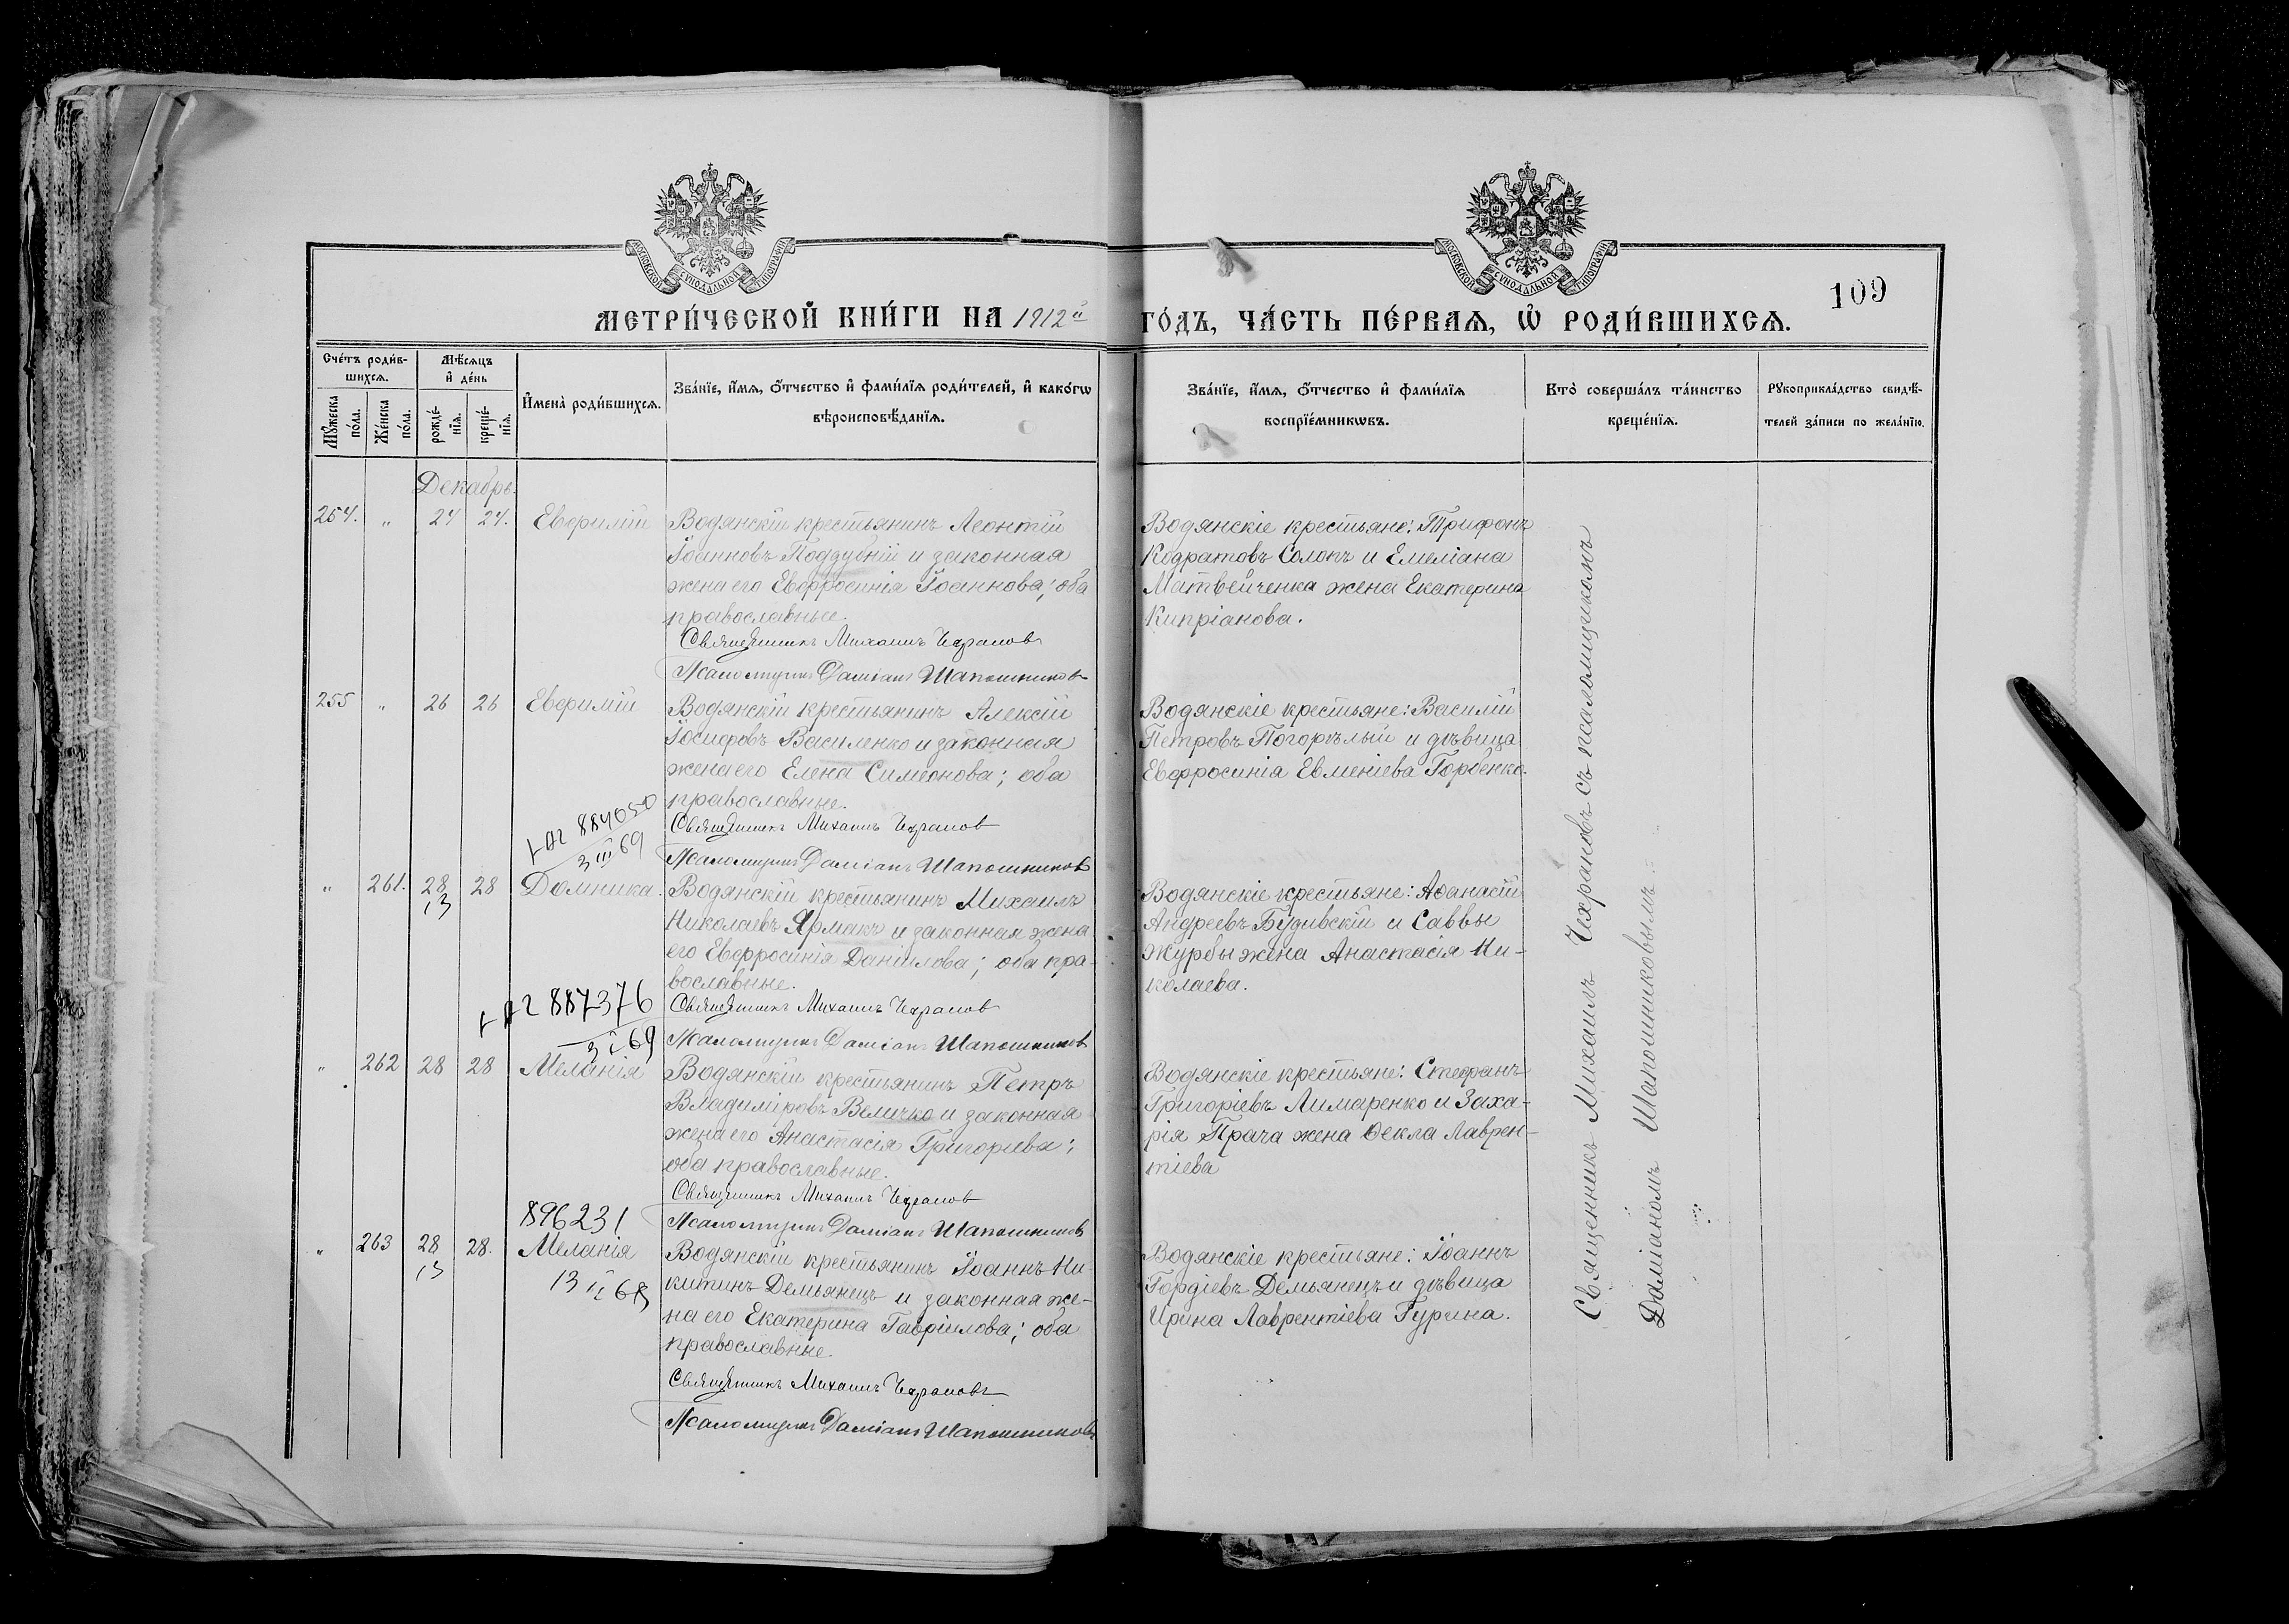 МОСКОВСКОЙ СѴНОДАЛЬНОЙ ТИПОГРАФІИ
МОСКОВСКОЙ СѴНОДАЛЬНОЙ ТИПОГРАФІИ
109
МЕТРИ́ЧЕСКОЙ КНИ́ГИ НА 1912й ГО́ДЪ, ЧА́СТЬ ПЕ́РВАЯ, Ѡ҆ РОДИ́ВШИХСЯ.
Сче́тъ роди́в-
шихсѧ.
Мѣ́сѧцъ
и҆ де́нь
Мꙋ́жеска по́ла.
Же́нска по́ла.
рожде́-
нїѧ.
креще́-
нїѧ.
И҆мена̀ роди́вшихсѧ.
Зва́нїе, и҆́мѧ, ѻ҆́тчество и҆ фами́лїѧ роди́телей, и҆ како́гѡ
вѣроисповѣ́данїѧ.
Зва́нїе, и҆́мѧ, ѻ҆́тчество и҆ фами́лїѧ
воспрїе́мникѡвъ.
Кто̀ соверша́лъ та́инство
креще́нїѧ.
Рꙋкоприкла́дство свидѣ́-
телей за́писи по жела́нїю.
Декабрь.
254. " 24 24. Евфимій
Водянскій крестьянинъ Леонтій
Іоанновъ Поддубній и законная
жена его Евфросинія Іоаннова; оба
православные.
Священникъ Михаилъ Чехрановъ
Псаломщикъ Даміанъ Шапошниковъ
Водянскіе крестьяне: Трифонъ
Кодратовъ Солопъ и Емеліана
Матвейченка жена Екатерина
Кипріанова.
255 " 26 26 Евфимій
Водянскій крестьянинъ Алексій
Іосифовъ Василенко и законная
жена его Елена Симеонова; оба
православные.
Священникъ Михаилъ Чехранов
Псаломщикъ Даміанъ Шапошников
Водянскіе крестьяне: Василій
Петровъ Погорѣлый и дѣвица
Евфросинія Евменіева Горбенко.
884050
3 III 69
" 261. 28 28 Домникa.
13
Водянскій крестьянинъ Михаилъ
Николаевъ Ярмакъ и законная жена
его Евфросинія Даніилова; оба пра-
вославные.
Священникъ Михаилъ Чехранов
Псаломщикъ Даміанъ Шапошников
Водянскіе крестьяне: Аѳанасій
Андреевъ Будивскій и Саввы
Журбы жена Анастасія Ни-
колаева.
887376
69
" 262 28 28 Меланія
Водянскій крестьянинъ Петръ
Владиміровъ Величко и законная
жена его Анастасія Григоріева;
оба православные.
Священникъ Михаилъ Чехранов
Псаломщикъ Даміанъ Шапошников
Водянскіе крестьяне: Стефанъ
Григоріевъ Лимаренко и Заха-
рія Прача жена Ѳекла Лаврен-
тіева
896231
" 263 28 28. Меланія
13
13 II 68
Водянскій крестьянинъ Іоаннъ Ни-
китинъ Демьянецъ и законная же-
на его Екатерина Гавріилова; оба
православные.
Священникъ Михаилъ Чехрановъ
Псаломщикъ Даміанъ Шапошниковъ
Водянскіе крестьяне: Іоаннъ
Гордіевъ Демьянецъ и дѣвица
Ирина Лаврентіева Гурина.
Священникъ Михаилъ Чехрановъ съ псаломщикомъ
Даміаномъ Шапошниковымъ